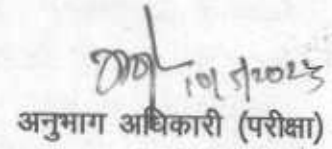 10/5/2023
अनुभाग अधिकारी (परीक्षा)